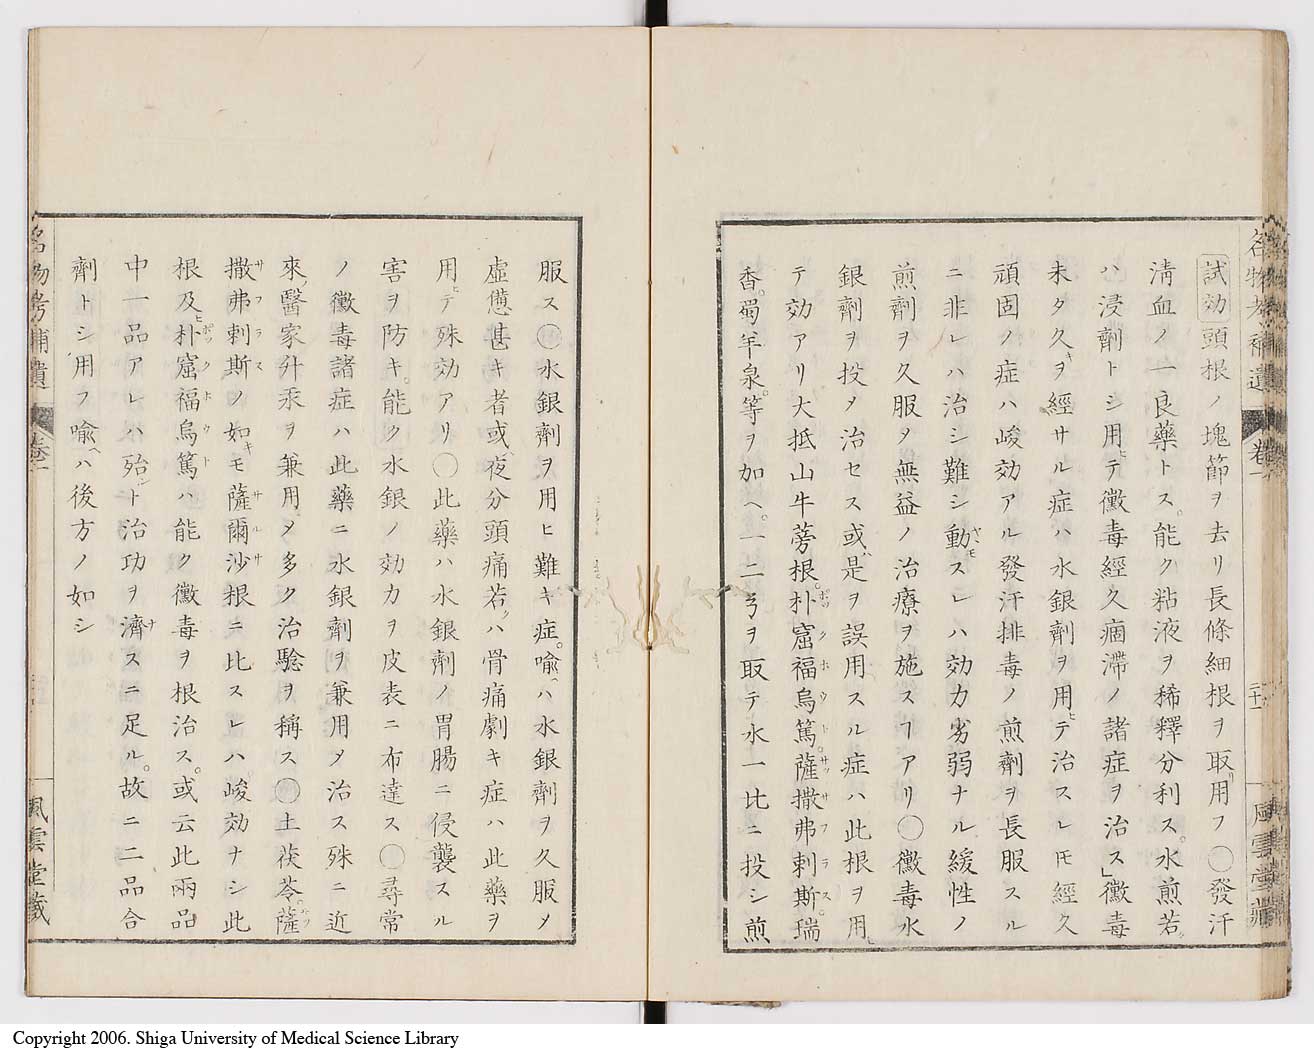 試効頭根ノ塊節ヲ去リ長條細根ヲ取リ用フ〇發汗
淸血ノ一良藥トス。能ク粘液ヲ稀釋分利ス。水煎若クハ
浸劑トシ用ヒテ黴毒經久痼滯ノ諸症ヲ治ス」黴毒
未タ久キヲ經サル症ハ水銀劑ヲ用ヒテ治スレ𪜈經久
頑固ノ症ハ峻効アル發汗排毒ノ煎劑ヲ長服スル
ニ非レハ治シ難シ動モスレハ効力劣弱ナル緩性ノ
煎劑ヲ久服〆無益ノ治療ヲ施スヿアリ〇黴毒水
銀劑ヲ投〆治セス或ハ是ヲ誤用スル症ハ此根ヲ用ヒ
テ効アリ大抵山牛蒡根。朴窟福烏篤。薩撒弗剌斯。瑞
香。蜀羊泉。等ヲ加ヘ。一二弓ヲ取テ水一比ニ投シ煎
服ス〇水銀劑ヲ用ヒ難キ症。喩ヘハ水銀劑ヲ久服〆
虛憊甚キ者或ハ夜分頭痛若クハ骨痛劇キ症ハ此藥ヲ
用ヒテ殊効アリ〇此藥ハ水銀劑ノ胃腸ニ侵襲スル
害ヲ防キ。能ク水銀ノ効力ヲ皮表ニ布達ス〇尋常
ノ黴毒諸症ハ此藥ニ水銀劑ヲ兼用〆治ス殊ニ近
來ノ醫家升汞ヲ兼用〆多ク治驗ヲ稱ス〇土茯苓。薩
撒弗剌斯ノ如キモ薩爾沙根ニ比スレハ峻効ナシ此
根及ヒ朴窟福烏篤ハ能ク黴毒ヲ根治ス。或云此兩品
中一品アレハ殆ント治功ヲ濟スニ足ル。故ニ二品合
劑トシ用フ喩ヘハ後方ノ如シ
名物考補遺 卷一
風雲堂藏
名物考補遺 卷一 二十一
風雲堂藏
Copyright 2006. Shiga University of Medical Science Library